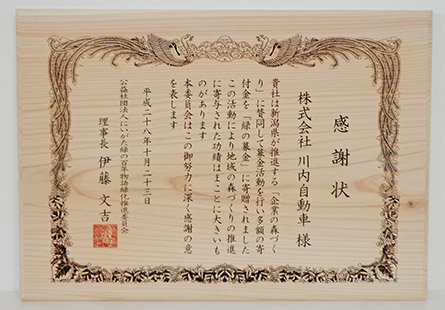 感謝状
株式会社 川内自動車 様
貴社は新潟県が推進する「企業の森づく
り」に賛同して募金活動を行い多額の寄
付金を「緑の募金」に寄贈されました
この活動により地域の森づくりの推進
に寄与された功績はまことに大きいも
のがあります
本委員会はこの御努力に深く感謝の意
を表します
平成二十八年十月二十三日
公益社団法人にいがた緑の百年物語緑化推進委員会
理事長 伊藤 文吉